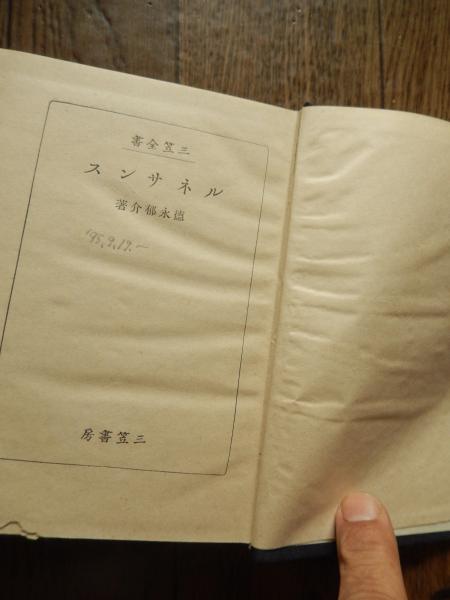 書全笠三
スンサネル
著介郁永德
'95.9.19.～
房書笠三